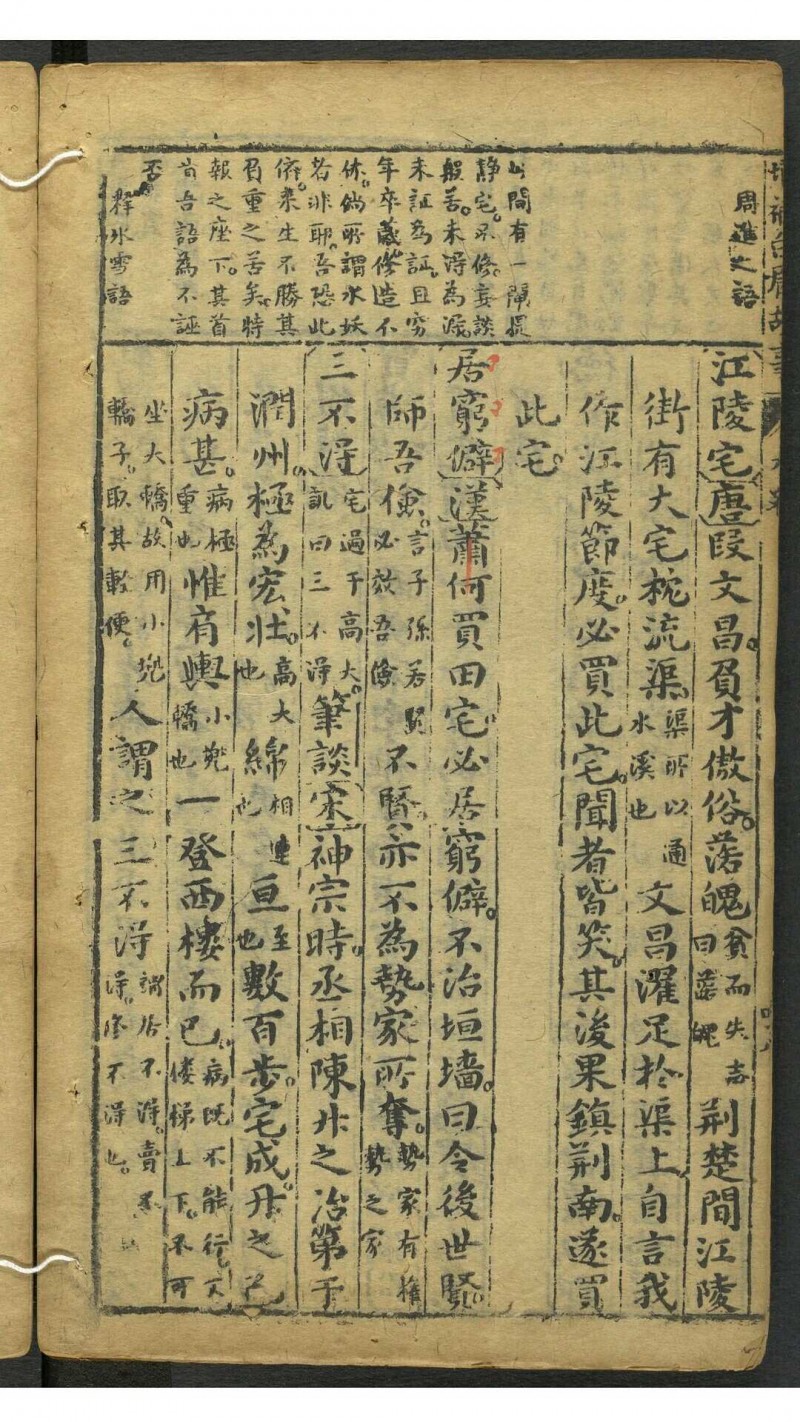 周進之語
山間有一闡提
静宅不修妄談
般若未得為泥
未証為証且窮
年卒歲修造不
休倘所謂水妖
若非耶吾恐此
依来生不勝其
負重之苦矣特
報之座下其首
肯吾語為不誣
否 釋水雪語
江陵宅唐段文昌負才傲俗落魄貧而失志曰落魄荆楚間江陵
街有大宅枕流渠渠所以通水溪也文昌濯足於渠上自言我
作江陵節度必買此宅聞者皆笑其後果鎮荆南遂買
此宅
居窮僻漢蕭何買田宅必居窮僻不治垣墻曰令後世賢
師吾儉言子孫若賢必效吾儉不賢亦不為勢家所奪勢家有權勢之家
三不得宅過于高大訊曰三不得筆談宋神宗時丞相陳升之治第于
潤州極為宏壯高大也綿相連也亘至也數百步宅成升之已
病甚病極重也惟肩輿小兠轎也一登西樓而已病既不能行又倭梯上下不可
坐大轎故用小兠轎子取其輕便人謂之三不得謂居不得賣不得修不得也